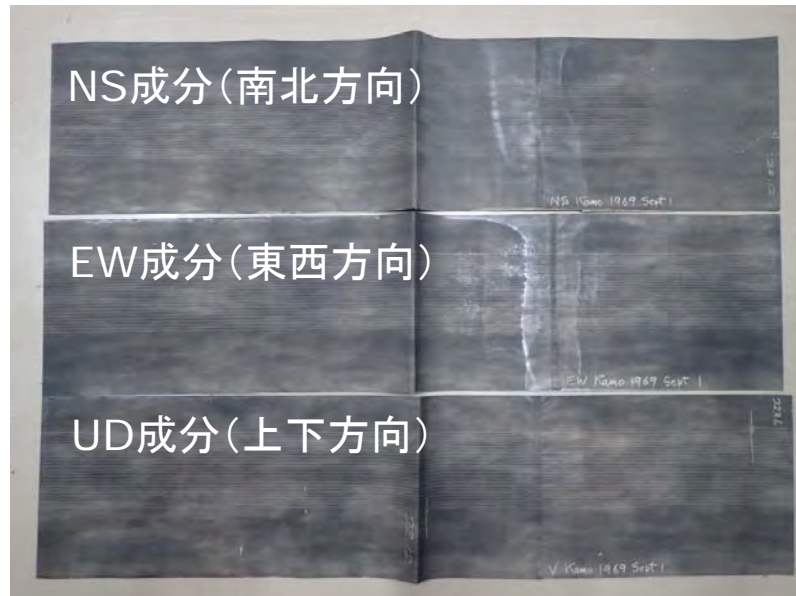 NS成分(南北方向)
NS Kamo 1969 Sept 1
EW成分(東西方向)
EW Kamo 1969 Sept 1
UD成分(上下方向)
V Kamo 1969 Sept 1